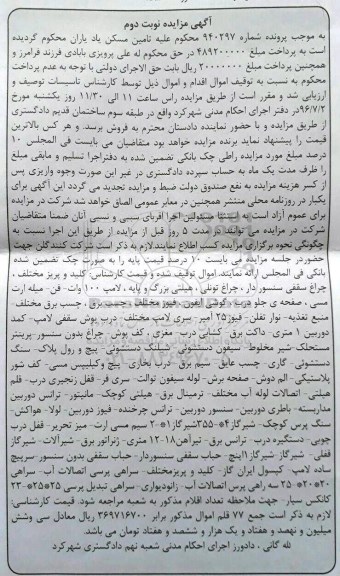 آگهی مزایده نوبت دوم
به موجب پرونده شماره ۹۴۰۲۹۷ محکوم علیه تامین مسکن یاد یاران محکوم گردیده
است به پرداخت مبلغ ۴۸۹۲۰۰۰۰۰ در حق محکوم له علی پرویزی بابادی فرزند فرامرز و
همچنین پرداخت مبلغ ۲۰۰۰۰۰۰۰ ریال بابت حق الاجرای دولتی با توجه به عدم پرداخت
محکوم به نسبت به توقیف اموال اقدام و اموال ذیل توسط کارشناس تاسیسات توصیف و
ارزیابی شد و مقرر است از طریق مزایده راس ساعت ۱۱ الی ۱۱/۳۰ روز یکشنبه مورخ
۹۶/۷/۲در دفتر اجرای احکام مدنی شهرکرد واقع در طبقه سوم ساختمان قدیم دادگستری
از طریق مزایده و با حضور نماینده دادستان محترم به فروش برسد. و هر کس بالاترین
قیمت را پیشنهاد نماید برنده مزایده خواهد بود متقاضیان می بایست فی المجلس ۱۰
درصد مبلغ مورد مزایده راطی چک بانکی تضمین شده به دفتراجرا تسلیم و مابقی مبلغ
را ظرف مدت یک ماه به حساب سپرده دادگستری در غیر این صورت وجوه واریزی پس
از کسر هزینه مزایده به نفع صندوق دولت ضبط و مزایده تجدید می گردد این آگهی برای
یکبار در روزنامه محلی منتشر همچنین در معابر عمومی الصاق خواهد شد شرکت در مزایده
برای عموم آزاد است به استثنا مسئولین اجرا اقربای سببی و نسبی آنان ضمنا متقاضیان
شرکت در مزایده می توانند در مدت ۵ روز قبل از مزایده از طریق این اجرا نسبت به
چگونگی نحوه برگزاری مزایده کسب اطلاع نمایند.لازم به ذکر است شرکت کنندگان جهت
حضوردر جلسه مزایده می بایست ۱۰ درصد قیمت پایه را به صورت چک تضمین شده
بانکی فی المجلس ارائه نمایند. اموال توقیف شده و قیمت کارشناسی: کلید و پریز مختلف ،
چراغ سقفی سنسور دار ، چراغ تونلی ، هیلتی بزرگ و پایه ، لامپ ۱۰۰ وات- فن- میله ارت
مسی ، صفحه ی جلو درب- گوشی آیفون - فیوز مختلف - چسب برق ، چسب برق مختلف -
منبع تغذیه- نوار تفلن- فیوز۲۵ آمپر- سری لامپ مختلف- درب پوش سقفی لامپ- کمد
دوربین ۱ متری- داکت برق- کشابی درب- مغزی ، کف پوش- چراغ بدون سنسور- پرینتر
مستحلک- شیر مخلوط- سیفون دستشوئی- شیلنگ دستشوئی- پیچ و رول پلاک- سنگ
دستشوئی- گاری- چسب عایق- سیم برق- درب بخاری- پیچ و کیلیپس مسی- کف شور
پلاستیکی- الم دوش- صفحه برش- لوله سیفون توالت- سری فر- قفل زنجیری درب- قلم
هیلتی- اتصالات لوله آب مختلف- ترمینال برق- هیلتی کوچک- مانیتور- ترانس دوربین
مداربسته- باطری دوربین- سنسور دوربین- ترانس چرخنده- فیوز دوربین- لولا- هواکش-
سنگ پرس کوچک- شیرگاز۴*-۳۵۵شیرگاز۱*-۲ سیم مسی ارت- میز تحریر- قفل درب
چوبی- دستگیره درب- ترانس برق- تیرآهن۱۸-۱۲ متری- ژنراتور برق- شیرآلات- شیرگاز
قفلی- شیرگاز- شیرگاز۱اینچ- حباب سقفی سنسوردار- حباب سقفی بدون سنسور- سرپیچ
ساده لامپ- کپسول ایران گاز- کلید و پریزمختلف- سراهی پرسی اتصالات آب- سراهی
۲۰*۲۰*۲۵- سه راهی پرس اتصالات آب- زانودیواری- سراهی تبدیل پرسی ۲۵*۲۵*-۲۳
کانکس سیار- جهت ملاحظه تعداد اقلام مذکور به شعبه مراجعه شود. قیمت کارشناسی:
لازم به ذکر است جمع ۷۷ قلم اموال مذکور برابر ۳۶۹۷۱۶۷۰۰ ریال معادل سی وشش
میلیون و نهصد و هفتاد و یک هزار و ششصد و هفتاد تومان می باشد.
تله گانی ، دادورز اجرای احکام مدنی شعبه نهم دادگستری شهرکرد